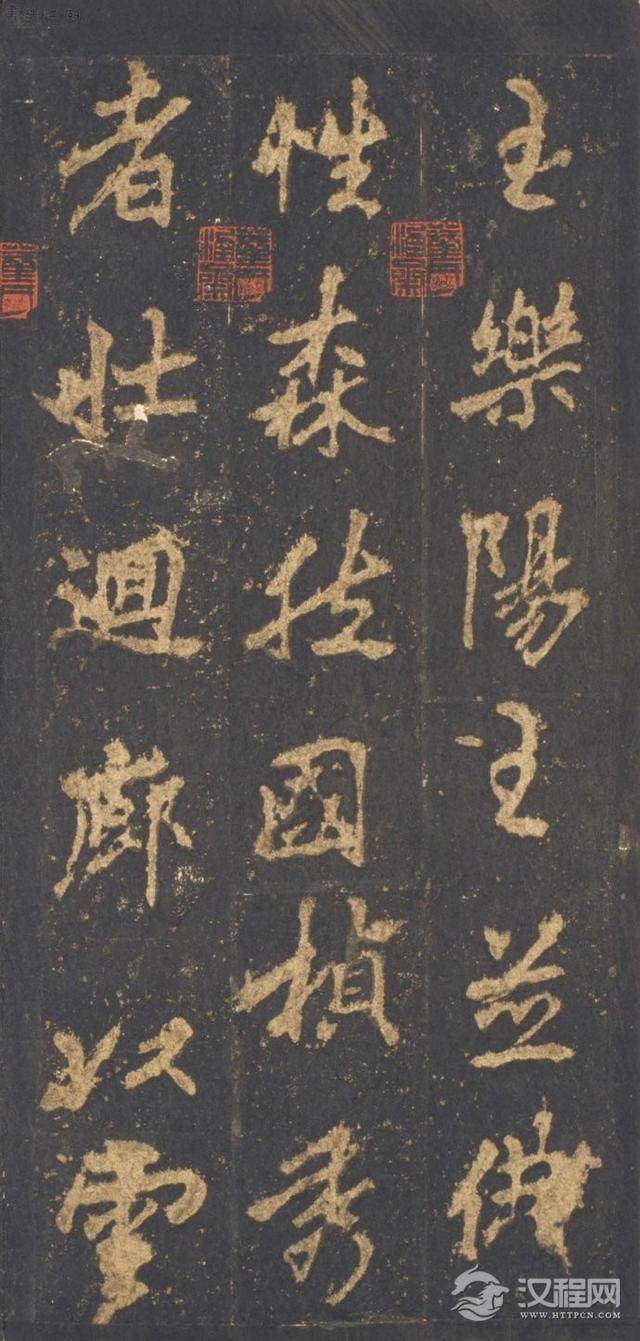 主樂陽主並佛
性森國楨秀
者壯迴廊以雲
汉程网
WWW.HTTPCN.COM